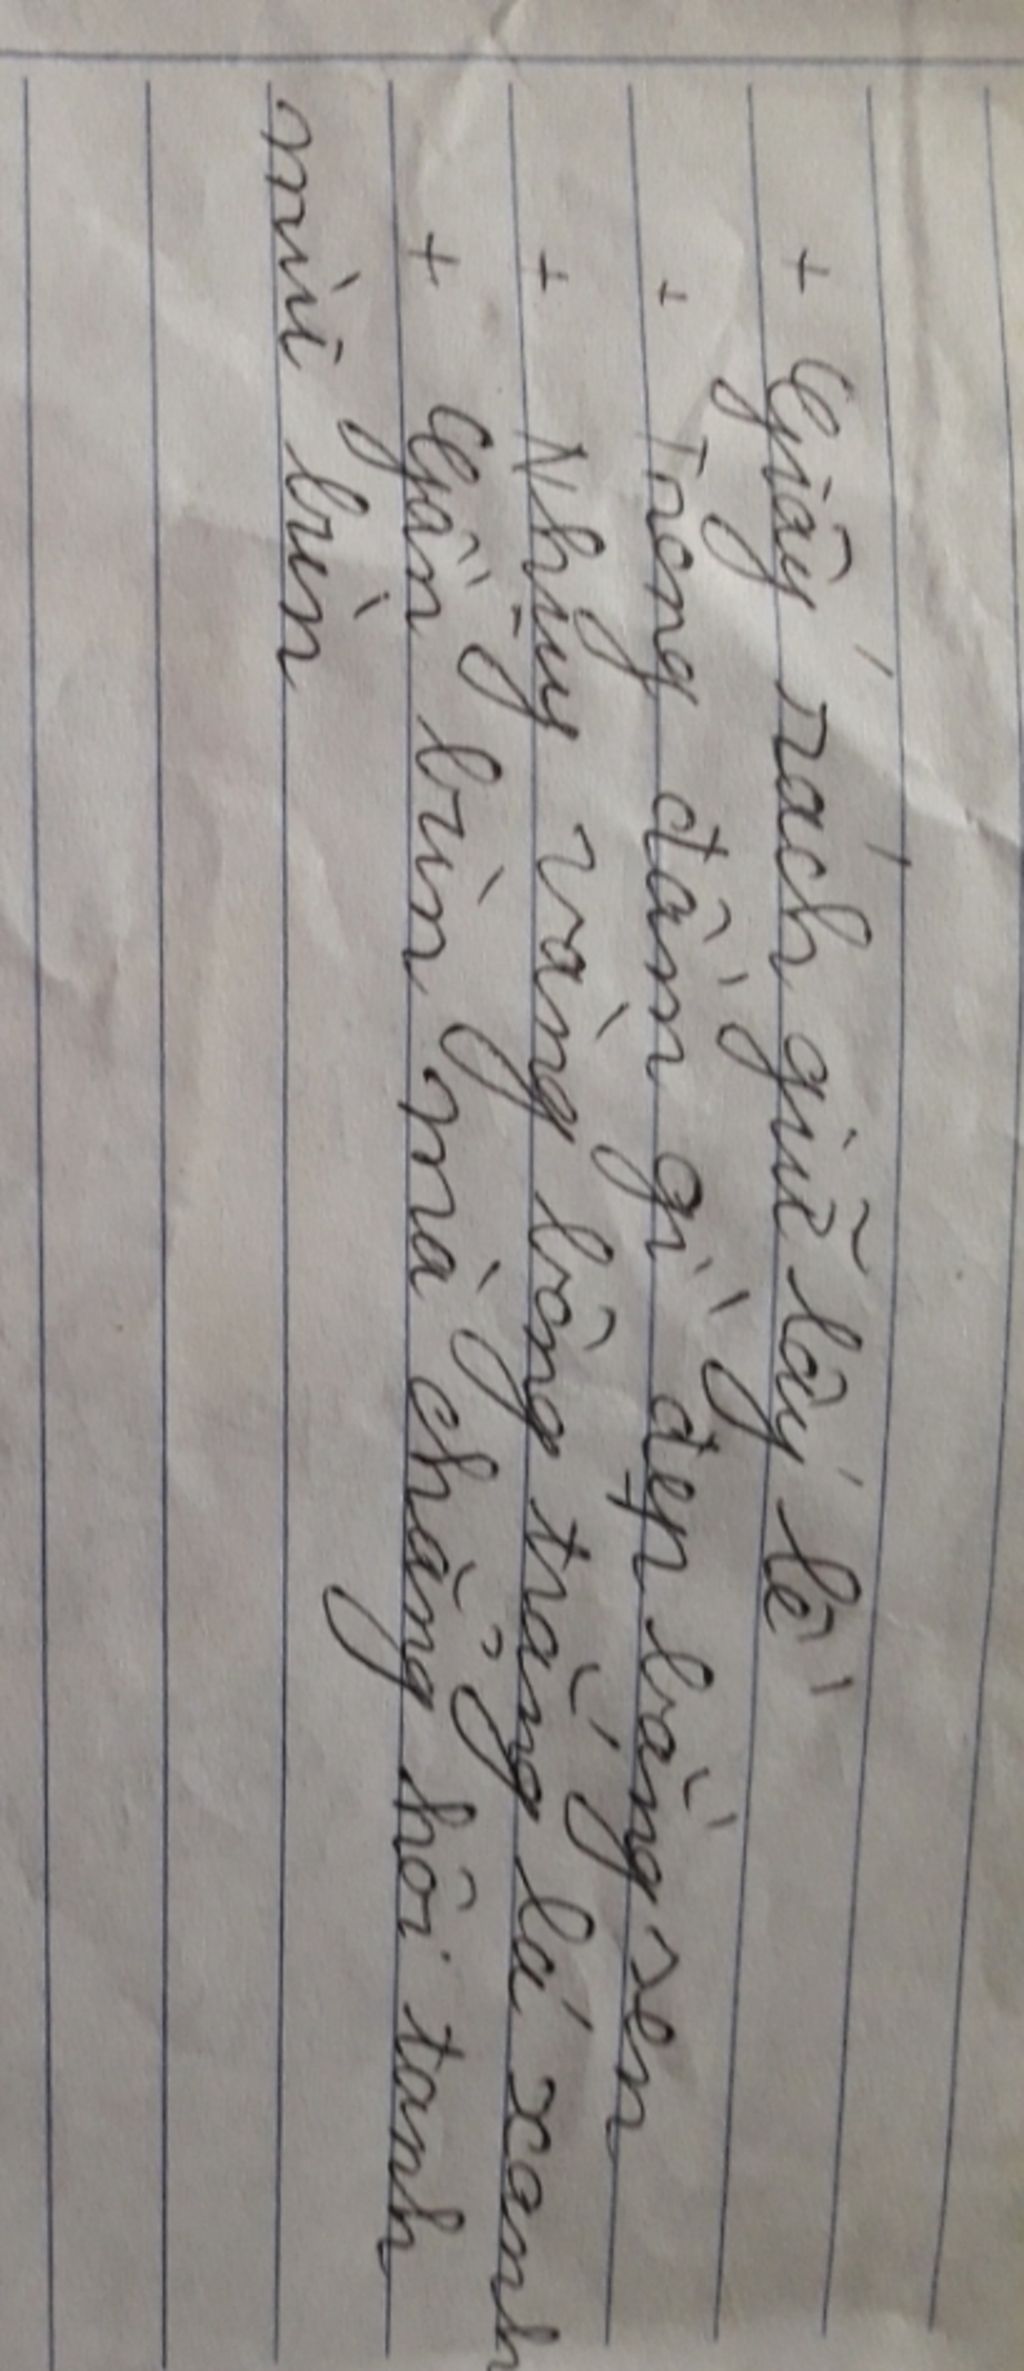 + Giấy rách giữ lấy lề
+ Trong đầm gì đẹp bằng sen
+ Nhị vàng bông trắng lá xanh
+ Gần bùn mà chẳng hôi tanh
mùi bùn